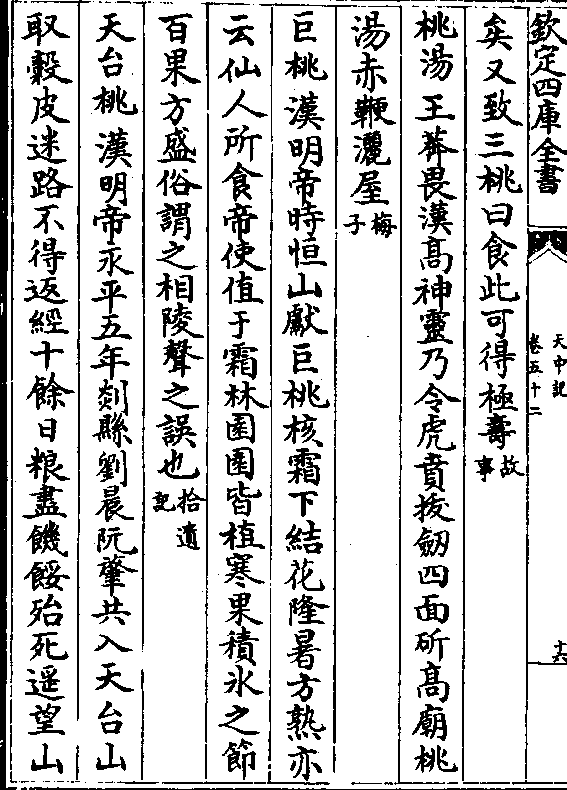 欽定四庫全書
天中記
卷五十二
十六
矣又致三桃曰食此可得極壽故事
桃湯 王莽畏漢高神靈乃令虎賁拔劒四面斫高廟桃
湯赤鞭灑屋梅子
巨桃 漢明帝時恒山獻巨桃核霜下結花隆暑方熟亦
云仙人所食帝使值于霜林園園皆植寒果積氷之節
百果方盛俗謂之相陵聲之誤也拾遺記
天台桃 漢明帝永平五年剡縣劉晨阮肇共入天台山
取穀皮迷路不得返經十餘日粮盡饑餒殆死遥望山